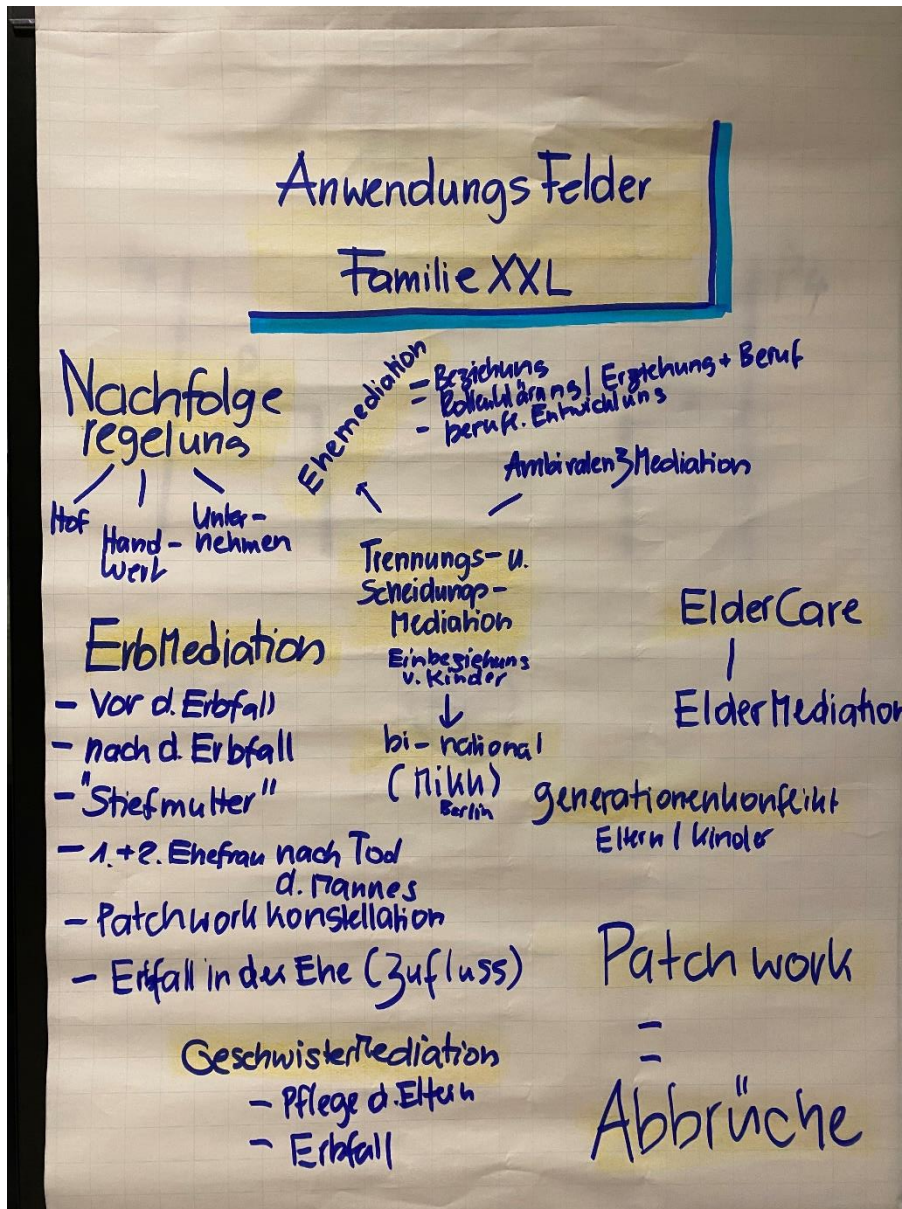 Anwendungs Felder
Familie XXL
Nachfolge
regelung
Hof
Hand-
werk
Unter-
nehmen
Ehemediation
- Beziehung
- Rollenklärung / Erziehung + Beruf
- berufl. Entwicklung
Ambivalenz Mediation
Trennungs- u.
Scheidungs-
Mediation
Einbeziehung
v. Kinder
bi-national
(Mikk)
Berlin
ErbMediation
- Vor d. Erbfall
- nach d. Erbfall
- "Stiefmutter"
- 1.+2. Ehefrau nach Tod
d. Mannes
- Patchwork konstellation
- Erbfall in der Ehe (Zufluss)
ElderCare
ElderMediation
generationenkonflikt
Eltern / Kinder
GeschwisterMediation
- Pflege d. Eltern
- Erbfall
Patch work
-
-
Abbrüche